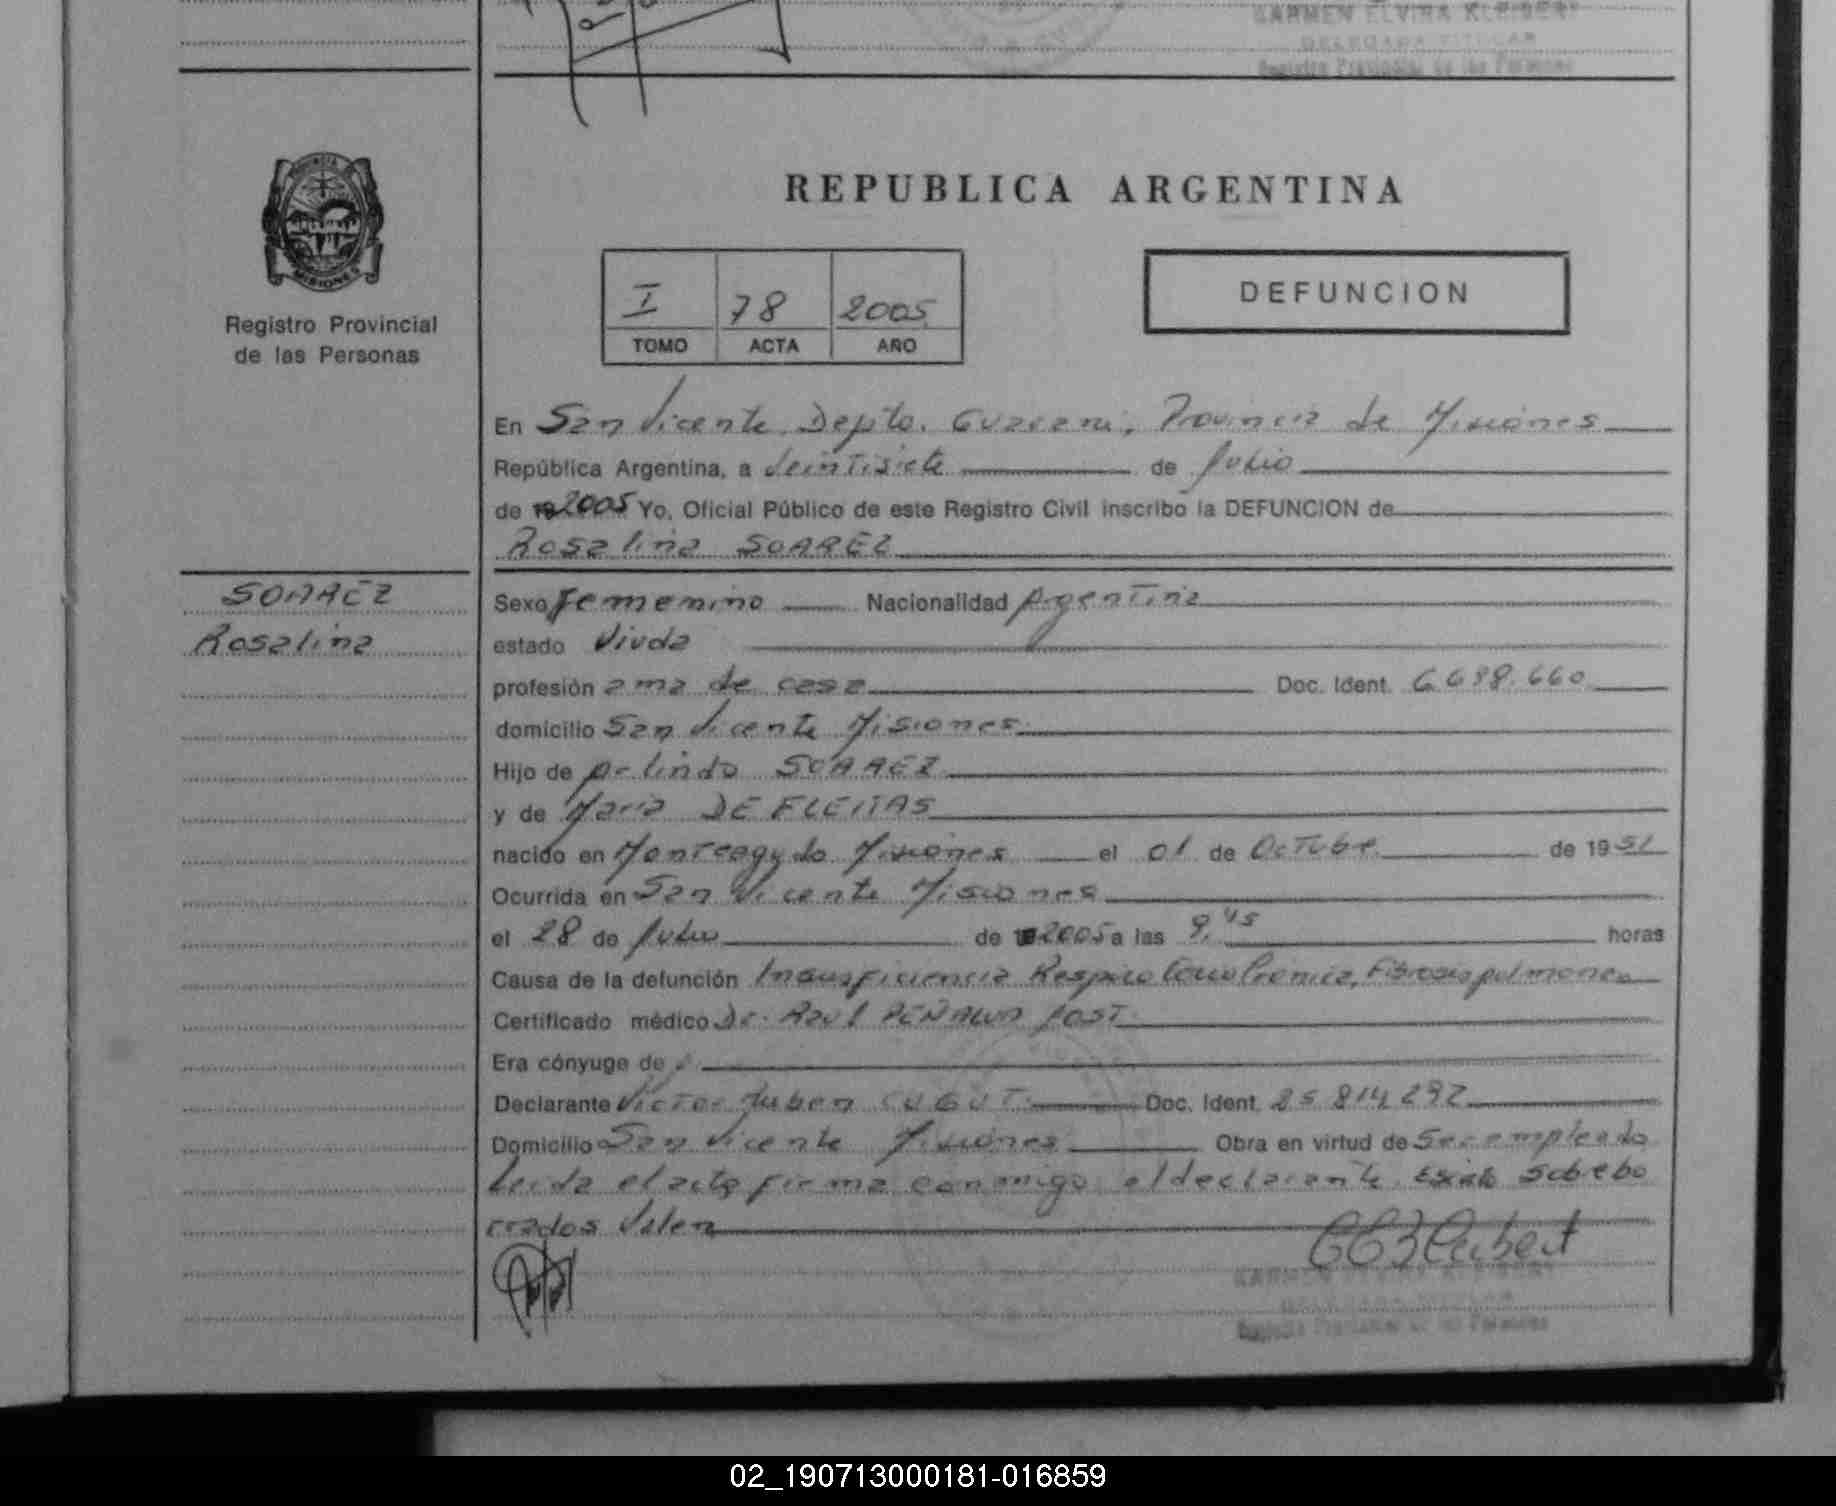 KARMEN ELVIRA KLEIBERT
DELEGADA TITULAR
Registro Provincial de las Personas
PROVINCIA DE
MISIONES
Registro Provincial
de las Personas
REPUBLICA ARGENTINA
I 78 2005
TOMO ACTA AÑO
DEFUNCION
En San Vicente, Depto. Guarani, Provincia de Misiones
República Argentina, a Veintisiete de Julio
de 19 2005 Yo, Oficial Público de este Registro Civil inscribo la DEFUNCION de
Rosalina SOAREZ
SOAREZ
Rosalina
Sexo Femenino Nacionalidad Argentina
estado Viuda
profesión ama de casa Doc. Ident. 6.698.660
domicilio San Vicente Misiones
Hijo de Arlindo SOAREZ
y de Maria DE FLEITAS
nacido en Monteagudo Misiones el 01 de Octubre de 1951
Ocurrida en San Vicente Misiones
el 28 de Julio de 2005 a las 9,45 horas
Causa de la defunción Insuficiencia Respiratoria Cronica, Fibrosis pulmonar
Certificado médico Dr. Raul PEÑALVA POST
Era cónyuge de
Declarante Victor Ruben CUBUT Doc. Ident. 25 814 292
Domicilio San Vicente Misiones Obra en virtud de Ser empleado
Leida el acta firma conmigo el declarante. sobrebo
rrados Valen
KARMEN ELVIRA KLEIBERT
DELEGADA TITULAR
Registro Provincial de las Personas
02_190713000181-016859